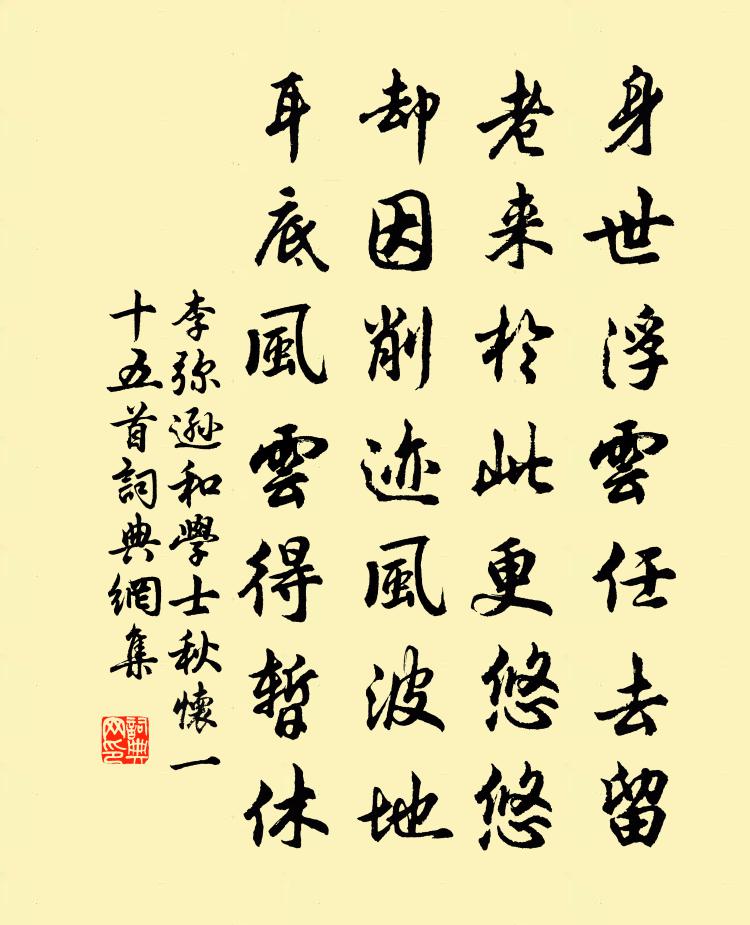 身世浮雲任去留
老来於此更悠悠
却因削迹風波地
耳底風雲得暫休
李弥遜和學士秋懷一
十五首詞典網集
詞典
网印